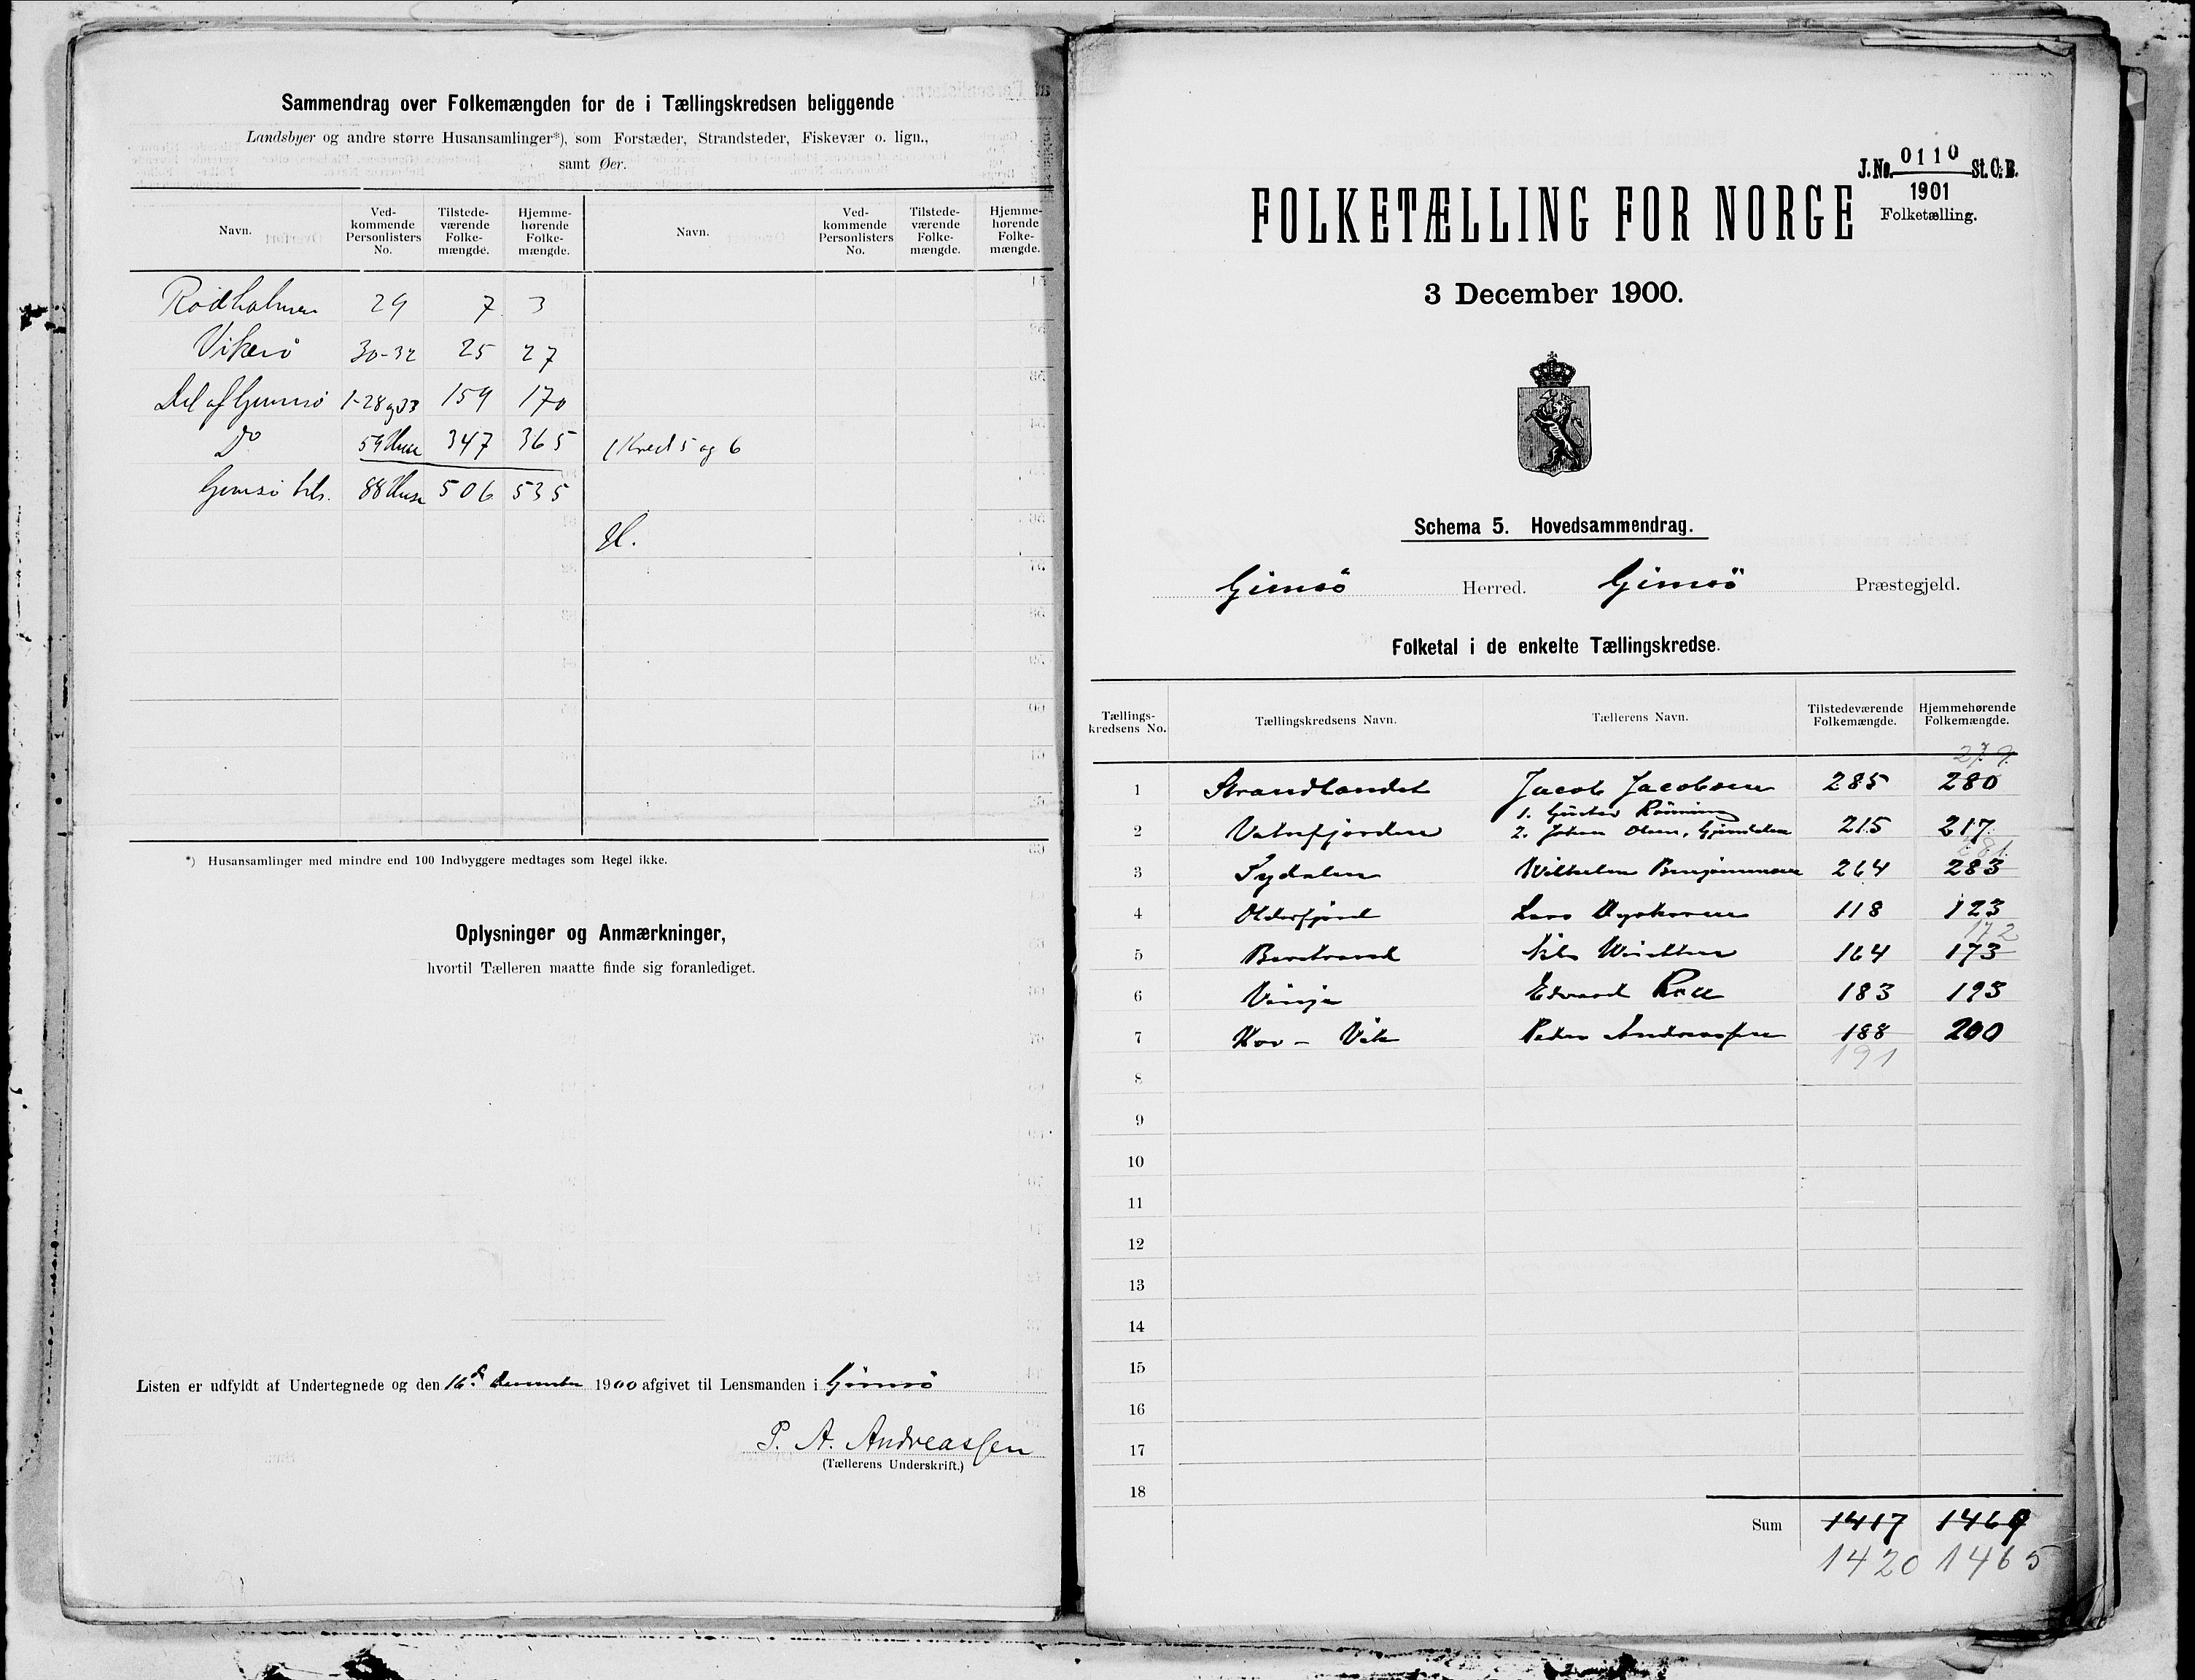 Sammendrag over Folkemængden for de i Tællingskredsen beliggende
Landsbyer og andre større Husansamlinger*), som Forstæder, Strandsteder, Fiskevær o. lign.,
samt Øer.
Navn. Ved-kommende Personlisters No. Tilstede-værende Folke-mængde. Hjemme-hørende Folke-mængde. Navn. Ved-kommende Personlisters No. Tilstede-værende Folke-mængde. Hjemme-hørende Folke-mængde.
Rödholmen 29 7 3
Vikerö 30-32 25 27
Del af Gimsö 1-28 og 33 159 170
Do 59 Huse 347 365 (Kred 5 og 6
Gimsö 88 Huse 506 535
*) Husansamlinger med mindre end 100 Indbyggere medtages som Regel ikke.
Oplysninger og Anmærkninger,
hvortil Tælleren maatte finde sig foranlediget.
Listen er udfyldt af Undertegnede og den 16de december 1900 afgivet til Lensmanden i Gimsö
P. A. Andreassen
(Tællerens Underskrift.)
J. No. 0110 St. C. B.
1901
Folketælling.
FOLKETÆLLING FOR NORGE
3 December 1900.
Schema 5. Hovedsammendrag.
Gimsö Herred. Gimsö Præstegjeld.
Folketal i de enkelte Tællingskredse.
Tællings-kredsens No. Tællingskredsens Navn. Tællerens Navn. Tilstedeværende Folkemængde. Hjemmehørende Folkemængde.
279
1 Strandlandet Jacob Jacobsen 285 280
1. Gustav Rönning
2 Vatnfjorden 2. Johan Olsen, 215 217
281
3 Sydalen Wilhelm Benjaminsen 264 283
4 Olderfjord Lars 118 123
172
5 Barstrand Nils 164 173
6 Vinje Edvard 183 193
7 Hov - Vik Peder Andreassen 188 200
191
8
9
10
11
12
13
14
15
16
17
18
Sum 1417 1469
1420 1465